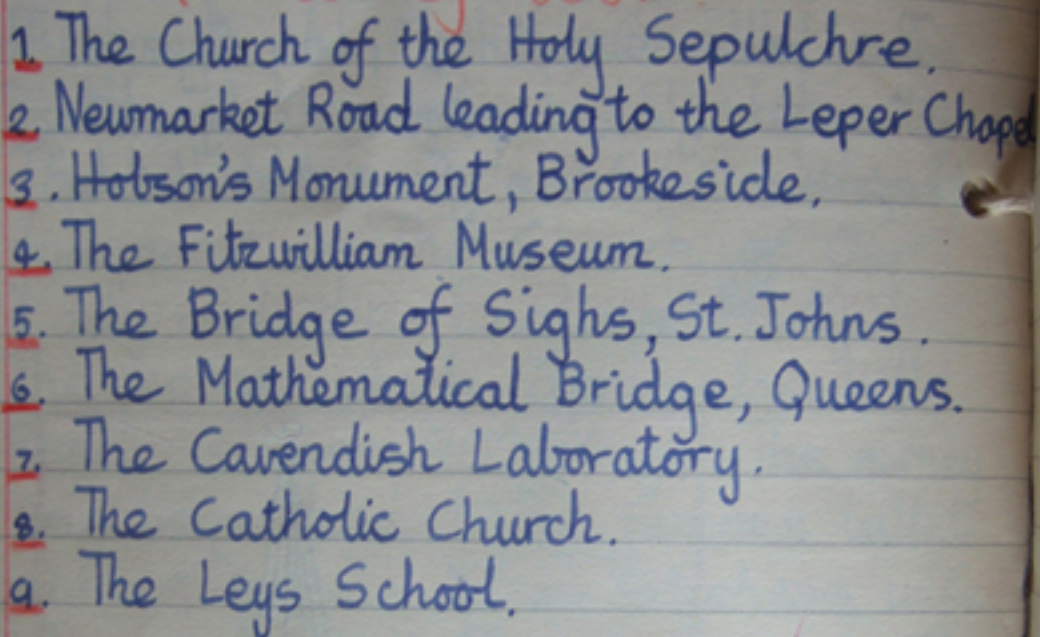 1. The Church of the Holy Sepulchre.
2. Newmarket Road leading to the Leper Chapel
3. Hobson's Monument, Brookeside.
4. The Fitzwilliam Museum.
5. The Bridge of Sighs, St. Johns.
6. The Mathematical Bridge, Queens.
7. The Cavendish Laboratory.
8. The Catholic Church.
9. The Leys School.